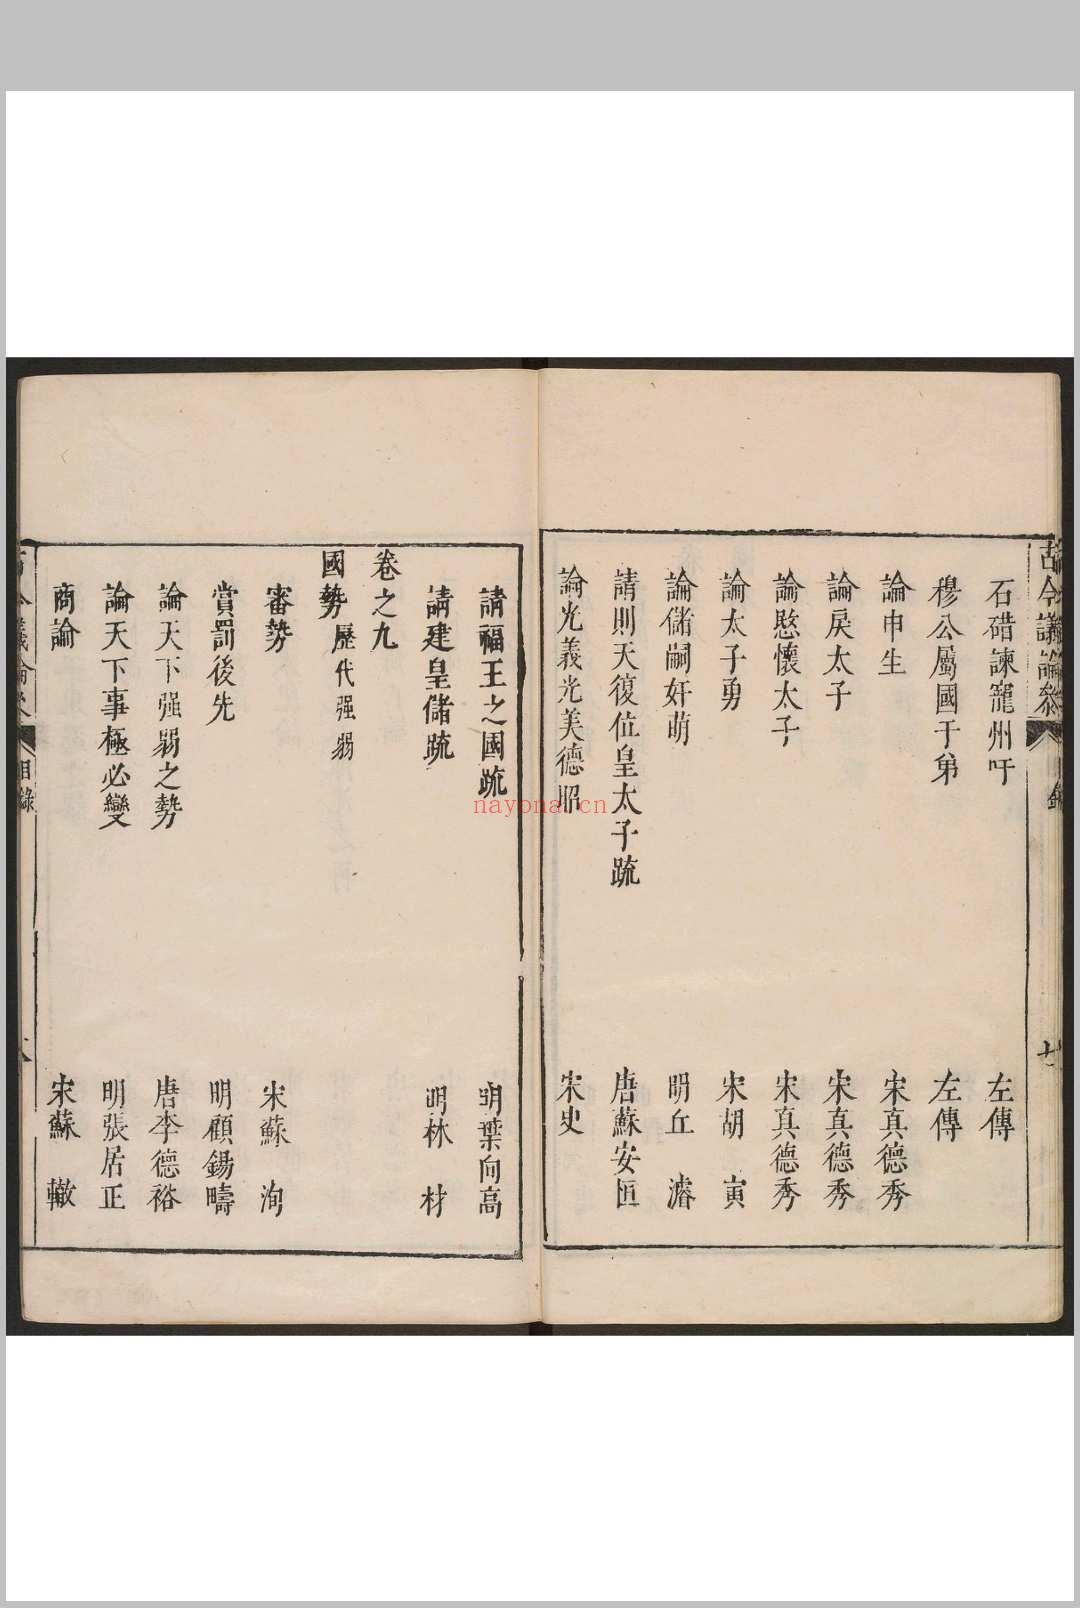 古今議論參
目錄
石碏諫寵州吁 左傳
穆公屬國于弟 左傳
論申生 宋真德秀
論戾太子 宋真德秀
論愍懷太子 宋真德秀
論太子勇 宋胡寅
論儲嗣奸萌 明丘濬
請則天復位皇太子疏 唐蘇安恒
論光義光美德昭 宋史
請福王之國疏 明葉向高
請建皇儲疏 明林材
卷之九
國勢 歷代强弱
審勢 宋蘇洵
賞罰後先 明顧錫疇
論天下强弱之勢 唐李德裕
論天下事極必變 明張居正
商論 宋蘇轍
目錄
nayona.cn